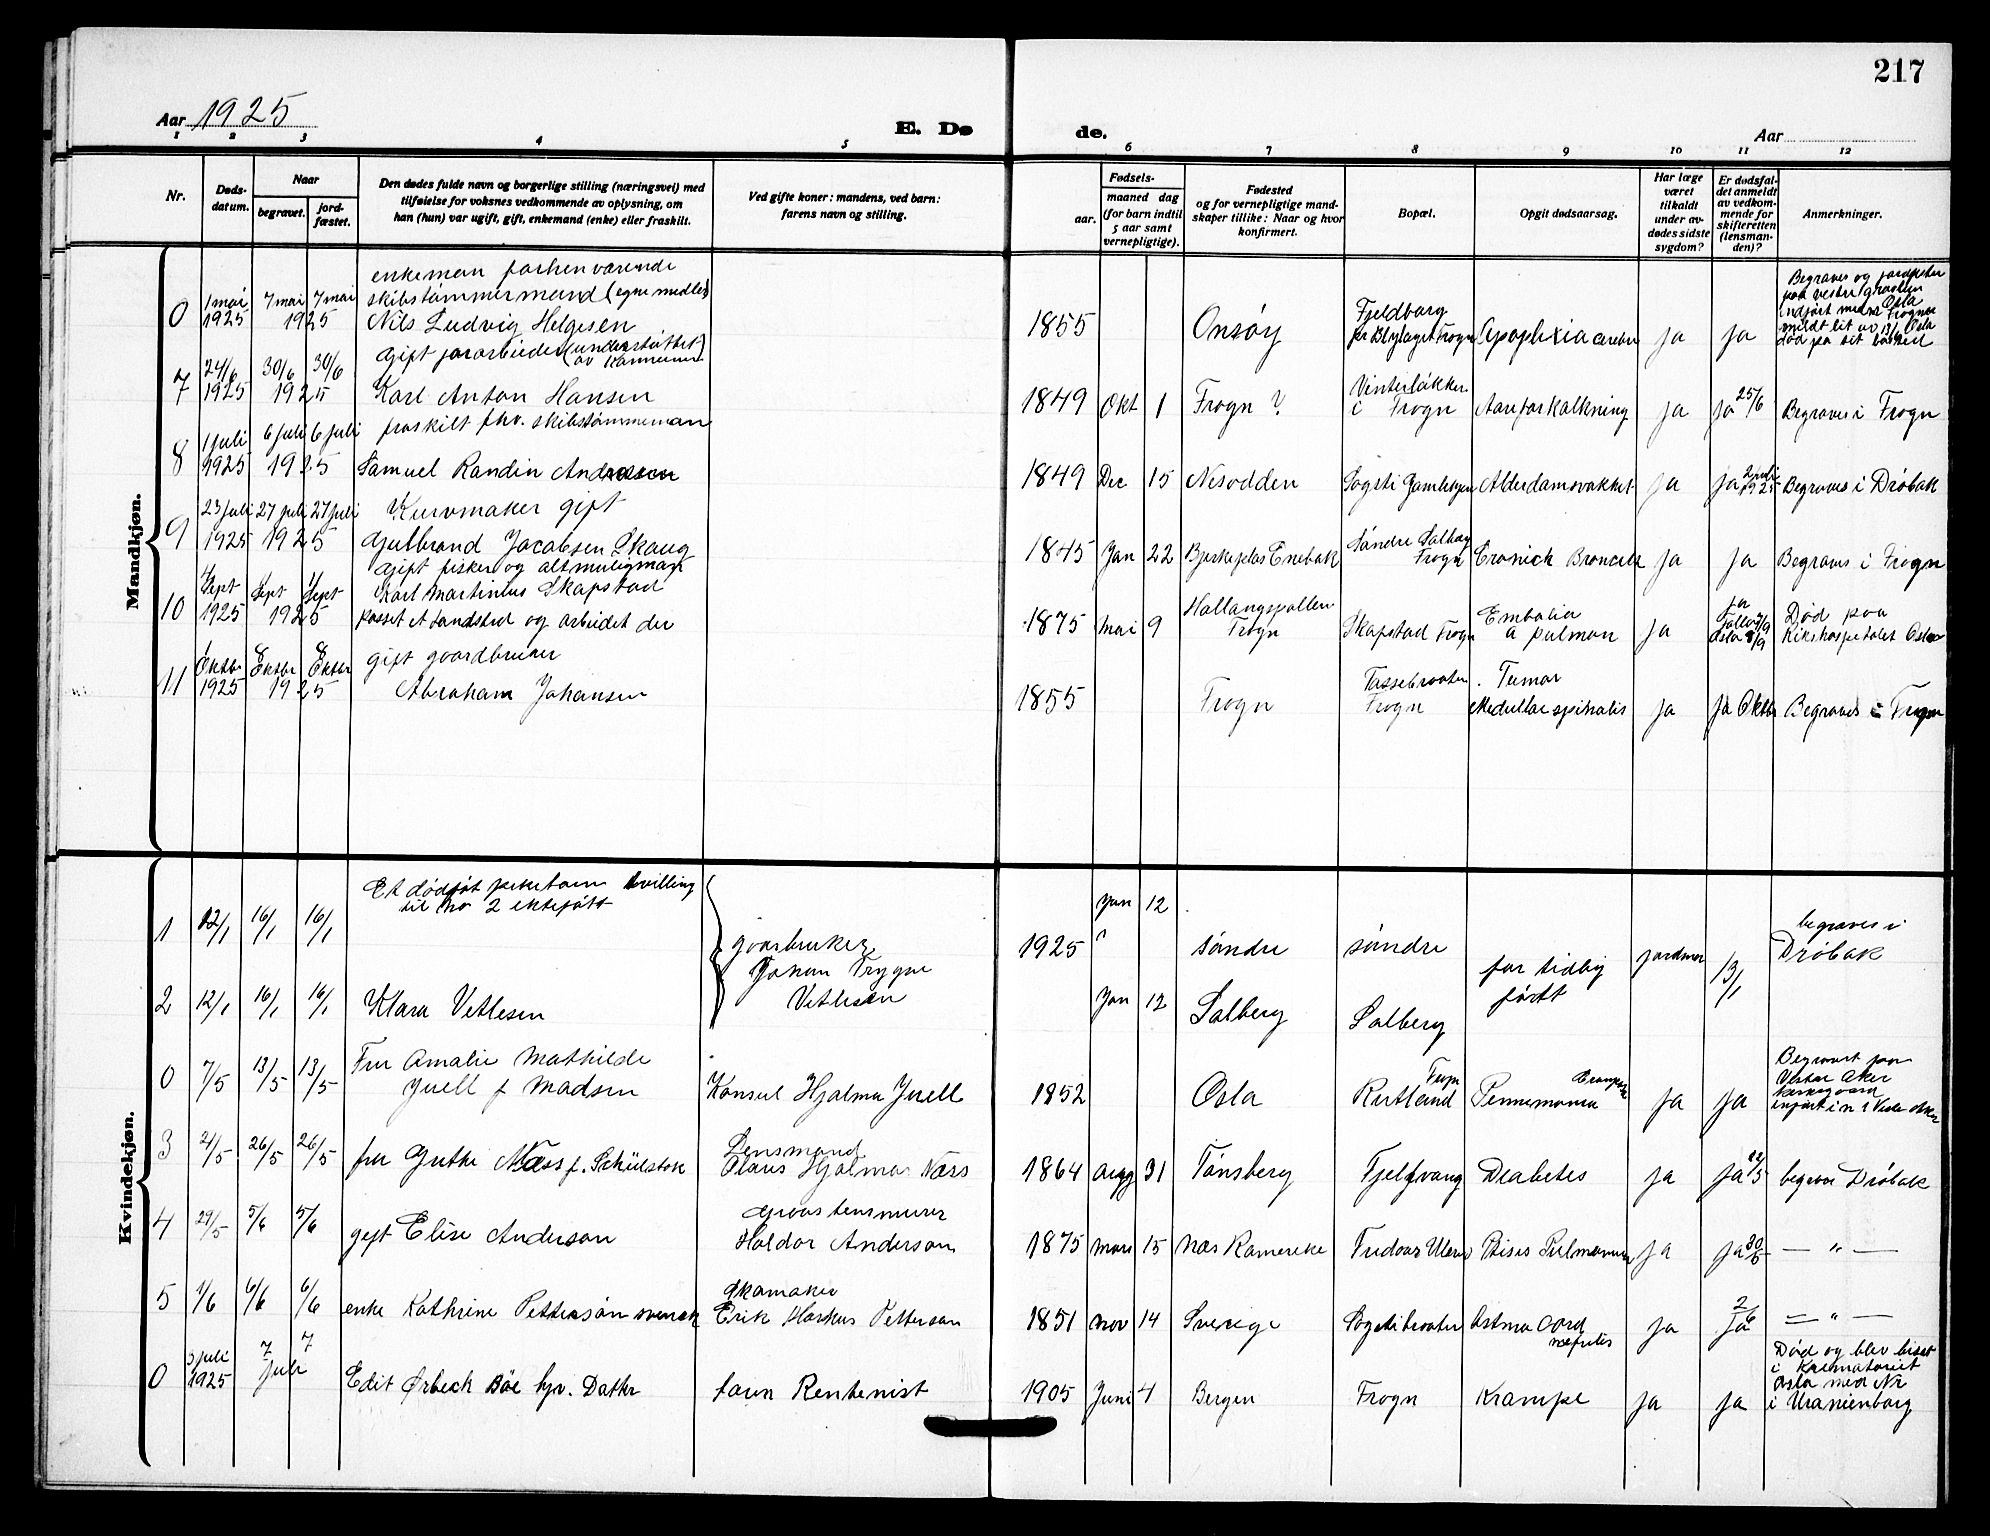 217
Aar 1925
E. Dø de.
Aar
1 2 3 4 5 6 7 8 9 10 11 12
Nr.
Døds-
datum.
Naar
begravet.
jord-
fæstet.
Den dødes fulde navn og borgerlige stilling (næringsvei) med
tilføielse for voksnes vedkommende av oplysning, om
han (hun) var ugift, gift, enkemand (enke) eller fraskilt.
Ved gifte koner: mandens, ved barn:
farens navn og stilling.
Fødsels-
aar.
maaned dag
(for barn indtil
5 aar samt
vernepligtige).
Fødested
og for vernepligtige mand-
skaper tillike: Naar og hvor
konfirmert.
Bopæl.
Opgit dødsaarsag.
Har læge
været
tilkaldt
under av-
dødes sidste
sygdom?
Er dødsfal-
det anmeldt
av vedkom-
mende for
skifteretten
(lensman-
den)?
Anmerkninger.
Mandkjøn.
0 1 mai 1925 7 mai 7 mai 1925
enkeman forhenværende
skibstømmermand (egne medler)
Nils Ludvig Helgesen
1855 Onsöy
Fjeldborg
pr Blylaget Frogn
Apoplexia cerebri ja ja
Begraves og jordfestes
paa vestre gravlun
Oslo
7 24/6 1925 30/6 30/6 1925
gift jorarbeider (understöttet
av Kommunen
Karl Anton Hansen
1849 Okt 1 Frogn ?
Vinterlökken
i Frogn
Aareforkalkning ja ja 25/6 Begraves i Frogn
8 1 juli 1925 6 juli 6 juli 1925
fraskilt fhv. skibstömmeman
Samuel Randin Andresen
1849 Dec 15 Nesodden Sogsti Alderdomsvakhet ja ja 2 juli 1925 Begraves i Dröbak
9 23 juli 1925 27 juli 27 juli 1925
Kurvmaker gift
Gulbrand Jacobsen Skaug
1845 Jan 22 Enebak
Söndre Solberg
Frogn
Cronick Broncitt ja ja Begraves i Frogn
10 Sept 1925 Sept Sept 1925
Gift fisker og altmuligman
Karl Martinius Skapstad
passet et landsted og arbeidet der
1875 Mai 9
Hallangspollen
Frogn
Skapstad Frogn
Embolia
a pulmon ja ja
Död paa
Rikshospitalet Oslo
11 Oktbr 1925 8 Oktbr 8 Oktbr 1925
gift gaardbruker
Abraham Johansen
1855 Frogn
Tassebraaten
Frogn
Tumor
Medullae spinalis ja ja Oktbr Begraves i Frogn
Kvindekjøn.
1 12/1 16/1 16/1
Et dödföt pikebarn tvilling
til no 2 ektefött
gaarbruker
Johan Trygve
Vetlesen
1925 Jan 12 söndre söndre
for tidlig
födt
jordmor 13/1
begraves i
Dröbak
2 12/1 16/1 16/1 Klara Vetlesen
Jan 12 Solberg Solberg
0 7/5 13/5 13/5
Fru Amalie Mathilde
Juell f Madsen
Konsul Hjalmar Juell
1852 Oslo
Frogn
Rutland
Pennemonia ja ja
Begravet paa
Vestre Aker
kirkegaard
3 21/5 26/5 26/5
fru Guthe Næss f. Schülstok
Lensmand
Olaus Hjalmar Næss
1864 Aug 31 Tönsberg Fjelgvang Diabetes ja ja 22/5 begrave Dröbak
4 29/5 5/6 5/6
gift Elise Anderson
Graastensmurer
Haldor Anderson
1875 Mars 15 Nes Romerike Ptisis Pulmonum ja ja 30/5 — " —
5 1/6 6/6 6/6
enke Kathrine Petterson svensk
Skomaker
Erik Markus Petterson
1851 Nov 14 Sverige Sogstibraaten
Astma cord
nefritis
ja 2/6 ja — " —
0 3 juli 1925 7 7 juli
Edit Örbeck Böe hjv. Datter
faren Rentenist
1905 Juni 4 Bergen Frogn Krampe ja ja
Död og blev biset
i Krematoriet
Oslo med Nr
i Uranienborg